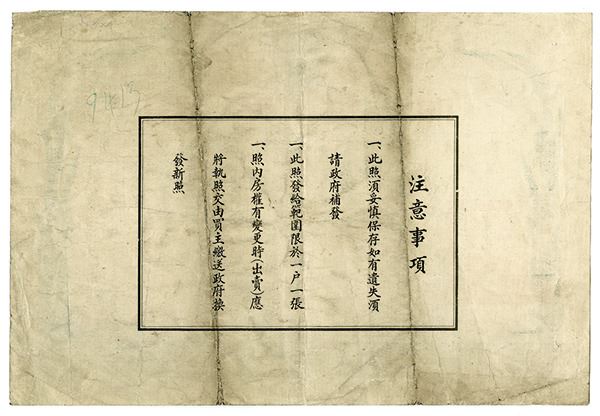 注意事項
一、此照須妥慎保存如有遺失須
請政府補發
一、此照發給範圍限於一户一張
一、照内房權有變更時(出賣)應
將執照交由買主繳送政府換
發新照